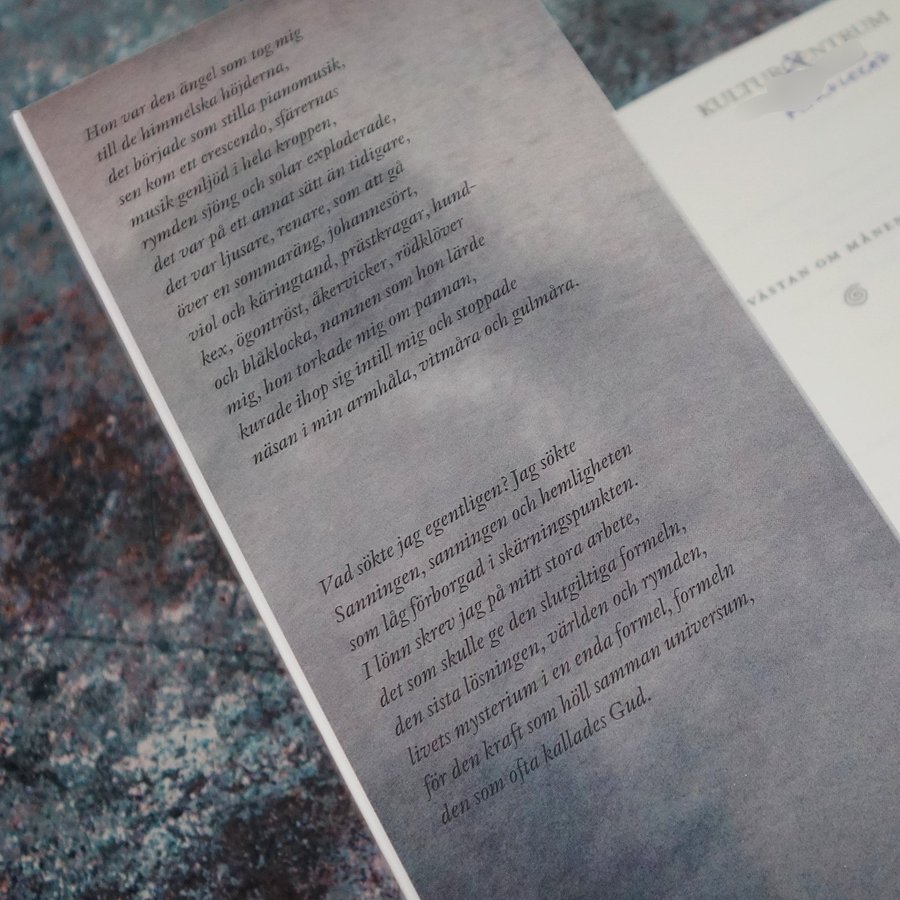 Hon var den ängel som tog mig
till de himmelska höjderna,
det började som stilla pianomusik,
sen kom ett crescendo, sfärernas
musik genljöd i hela kroppen,
rymden sjöng och solar exploderade,
det var på ett annat sätt än tidigare,
det var ljusare, renare, som att gå
över en sommaräng, johannesört,
viol och käringtand, prästkragar, hund-
kex, ögontröst, åkervicker, rödklöver
och blåklocka, namnen som hon lärde
mig, hon torkade mig om pannan,
kurade ihop sig intill mig och stoppade
näsan i min armhåla, vitmåra och gulmåra.
Vad sökte jag egentligen? Jag sökte
Sanningen, sanningen och hemligheten
som låg förborgad i skärningspunkten.
I lönn skrev jag på mitt stora arbete,
det som skulle ge den slutgiltiga formeln,
den sista lösningen, världen och rymden,
livets mysterium i en enda formel, formeln
för den kraft som höll samman universum,
den som ofta kallades Gud.
KULTURCENTRUM
VÄSTAN OM MÅNEN